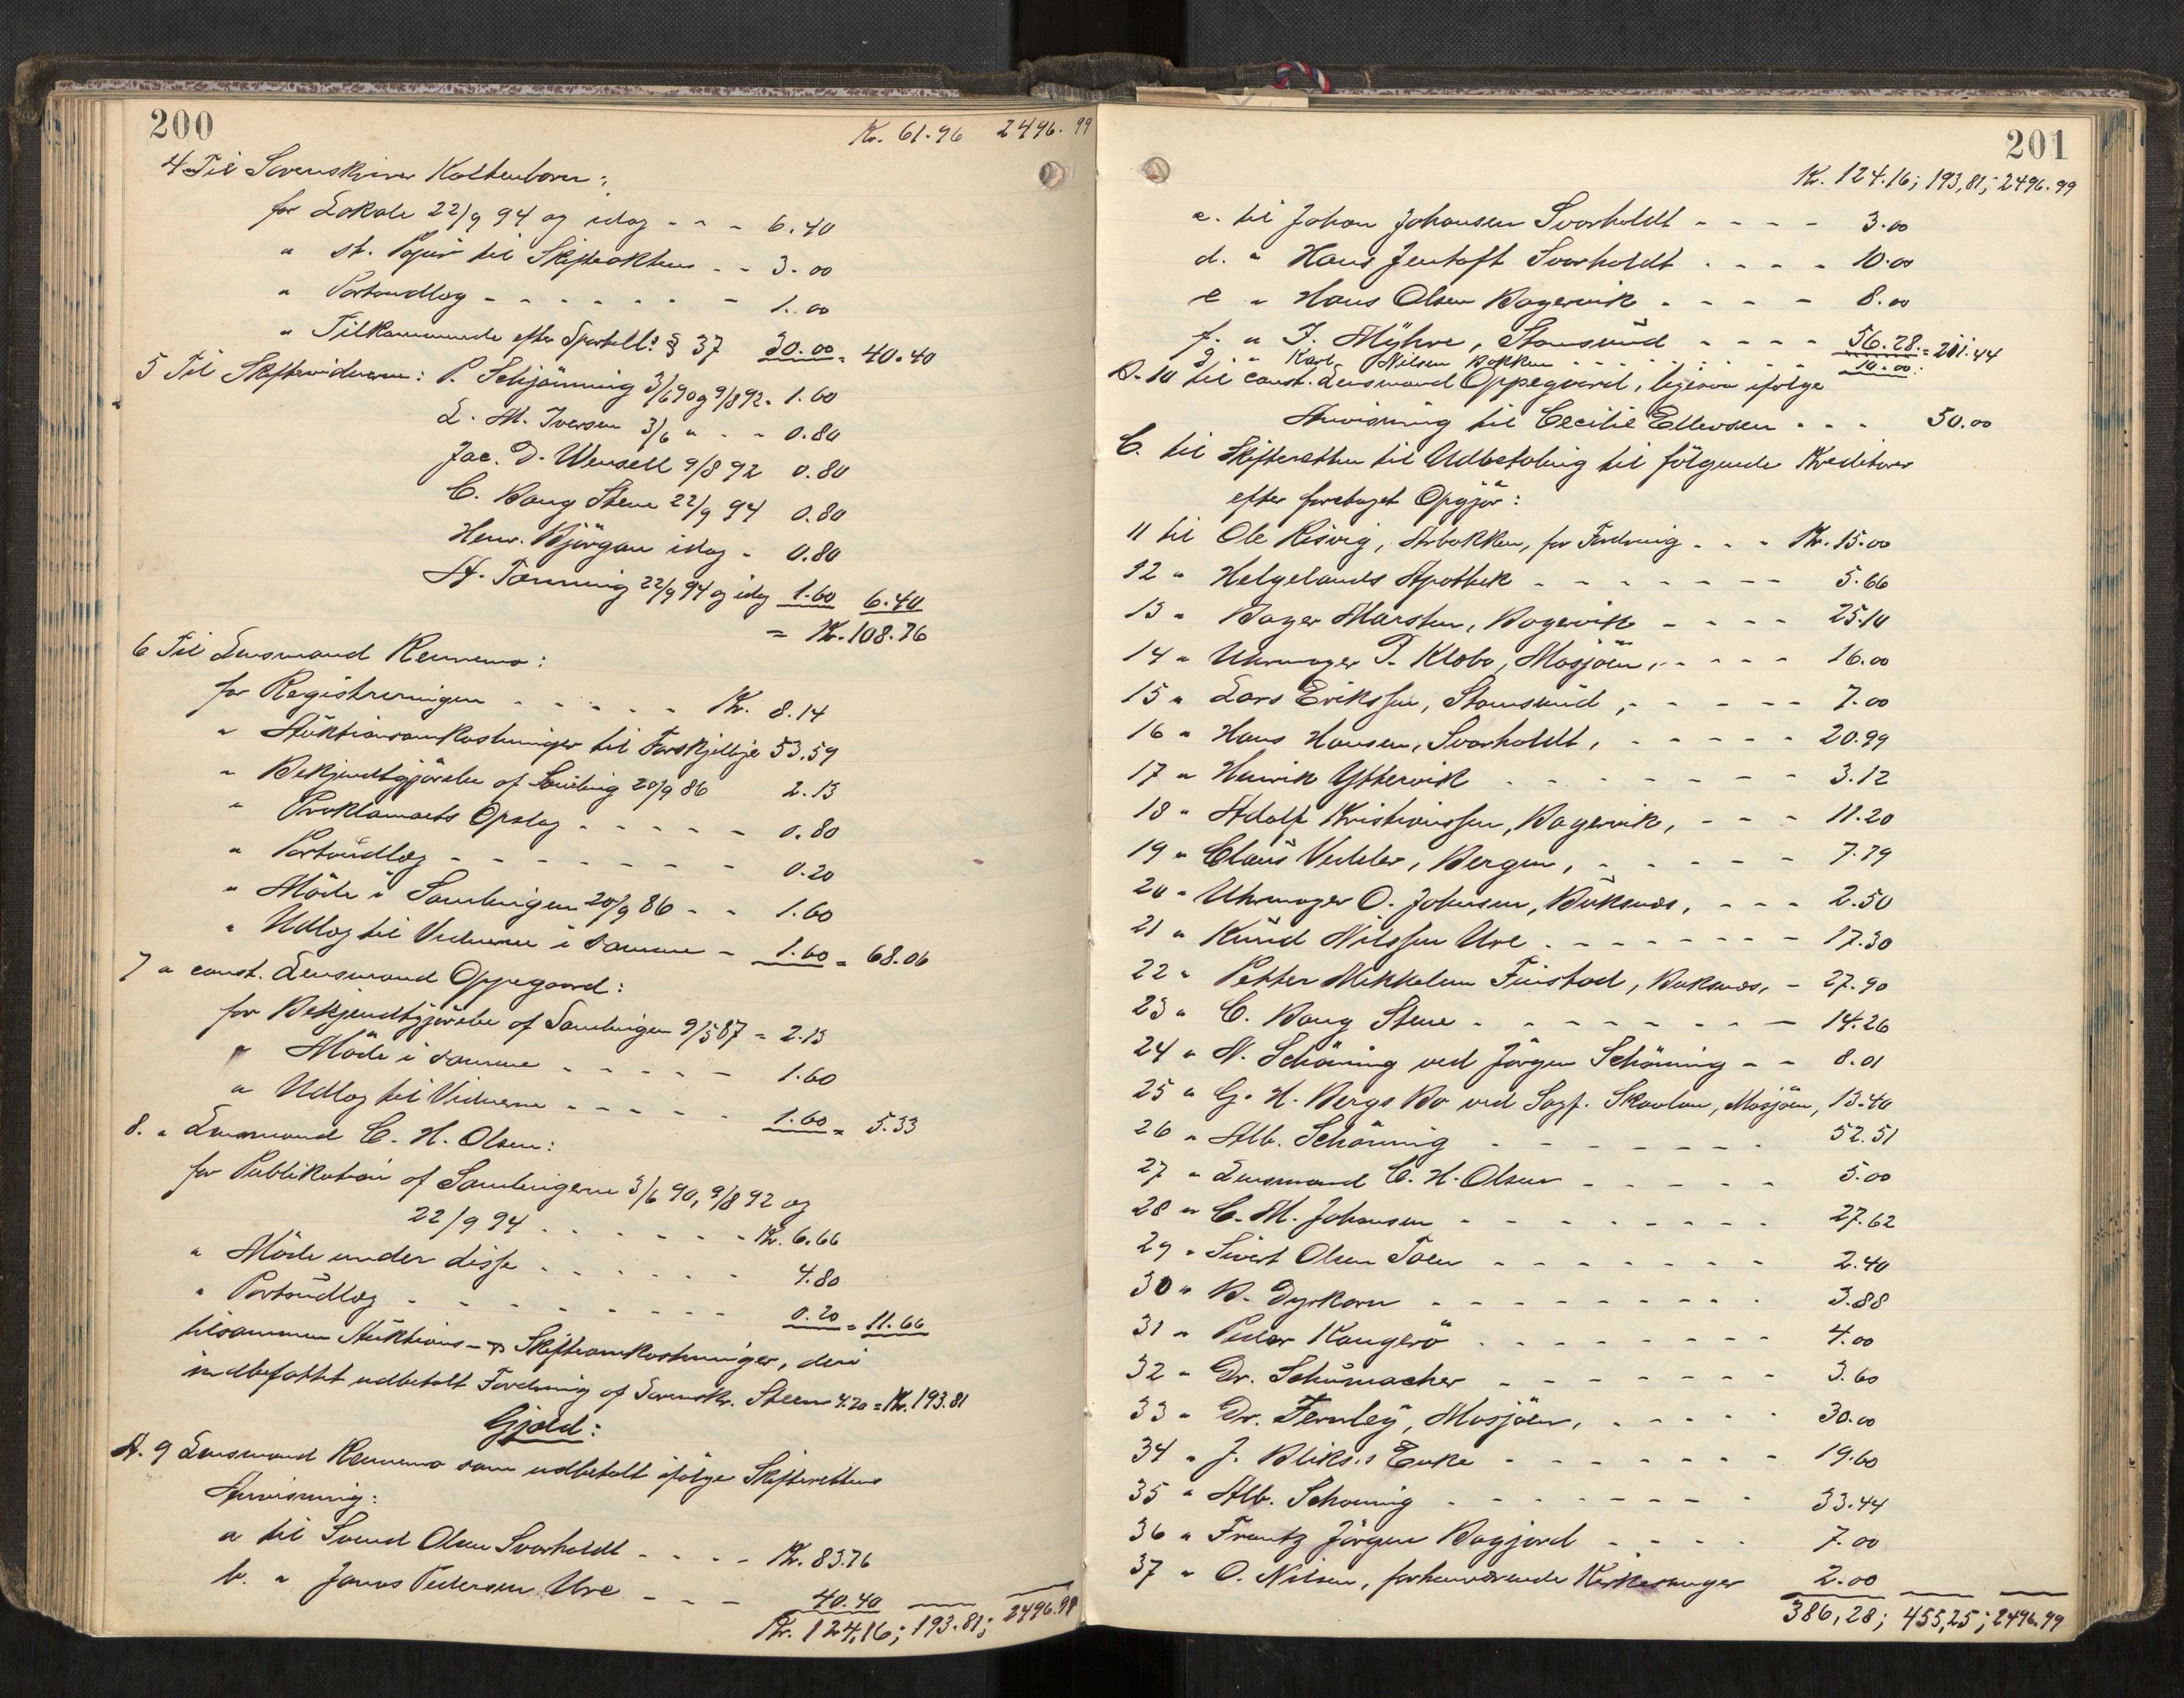 200
Kr. 61.96 2496.99
4 Til Sorenskriver Koltenborn:
for Lokale 22/9 94 og idag - - - 6.40
" st. Papir til Skifteakten - - 3.00
" Portoudlæg - - - - - - 1.00
" Tilkommende efter Sportell: § 37 30.00 = 40.40
5 Til Skiftevidnerne: P. Schjønning 3/6 90 og 9/8 92 = 1.60
L. M. Iversen 3/6 " - - 0.80
Jac. D. Wensell 9/8 92 0.80
C. Bang Steen 22/9 94 0.80
Henr. Bjørgan idag - 0.80
A. Tønning 22/9 94 og idag 1.60 6.40
= Kr. 108.76
6 Til Lensmand Rennemo:
for Registreringen - - - - - Kr. 8.14
" Auktionsomkostninger til Forskjellige 53.59
" Bekjendtgjørelse af Samling 20/9 86 2.13
" Proklamaets Opslag - - - - - 0.80
" Portoudlæg - - - - - - - 0.20
" Møde i Samlingen 20/9 86 - - 1.60
" Udlæg til Vidnerne i samme - 1.60 = 68.06
7 " const. Lensmand Oppegaard:
for Bekjendtgjørelse af Samlingen 9/5 87 = 2.13
" Møde i samme - - - - - 1.60
" Udlæg til Vidnerne - - - - - 1.60 = 5.33
8. " Lensmand C. H. Olsen:
for Publikation af Samlingerne 3/6 90, 9/8 92 og
22/9 94 - - - - - - Kr. 6.66
" Møde under disse - - - - - - 4.80
" Portoudlæg - - - - - - - - 0.20 = 11.66
tilsammen Auktions- og Skifteomkostninger, deri
indbefattet udbetalt Fordring af Sorenskr. Steen 4.20 = Kr. 193.81
Gjæld:
A. 9 Lensmand Rennemo som udbetalt ifølge Skifterettens
Anvisning:
a til Svend Olsen Svarholdt - - - - Kr. 83.76
b. " Jonas Pedersen Ure - - - 40.40
Kr. 124,16; 193.81; 2496.99
201
Kr. 124.16; 193,81; 2496.99
c. til Johan Johansen Svarholdt - - - - 3.00
d. " Hans Jentoft Svarholdt - - - - 10.00
e " Hans Olsen Bagervik - - - - 8.00
f. " J. Myhre, Stamsund - - - - 56.28 = 201.44
g. " Karl Nilsen Bakken - - - - - - 10.00
B. 10 til const. Lensmand Oppegaard, ligesaa ifølge
Anvisning til Cecilie Ellevsen - - - 50.00
C. til Skifteretten til Udbetaling til følgende Kreditorer
efter foretaget Opgjør:
11 til Ole Risvig, Arbakken, for Fordring - - - Kr. 15.00
12 " Helgelands Apothek - - - - - - - 5.66
13 " Bager Marsten, Bagervik - - - - 25.10
14 " Uhrmager P. Klæbo, Mosjøen, - - - - 16.00
15 " Lars Erikssen, Stamsund, - - - - - 7.00
16 " Hans Hansen, Svarholdt, - - - - - 20.99
17 " Henrik Yttervik - - - - - - - 3.12
18 " Adolf Kristianssen, Bagervik, - - - 11.20
19 " Claus Vedeler, Bergen, - - - - - 7.79
20 " Uhrmager O. Johnsen, Buksnæs, - - - 2.50
21 " Knud Nilssen Ure - - - - - - - - 17.30
22 " Petter Mikkelsen Finstad, Buksnæs, - 27.90
23 " C. Bang Steen - - - - - - - - 14.26
24 " N. Schøning ved Jørgen Schøning - - 8.01
25 " G. H. Bergs Bo ved Sagf. Skavlan, Mosjøen, 13.40
26 " Alb. Schønning - - - - - - - 52.51
27 " Lensmand C. H. Olsen - - - - - 5.00
28 " C. M. Johansen - - - - - - - - 27.62
29 " Sivert Olsen Toen - - - - - - - 2.40
30 " B. Dyrkorn - - - - - - - - - 3.88
31 " Peder Kangerø - - - - - - - - 4.00
32 " Dr. Schumacher - - - - - - - 3.60
33 " Dr. Fernley, Mosjøen, - - - - - 30.00
34 " J. Bliks.s Enke - - - - - - - 19.60
35 " Alb. Schønning - - - - - - - - 33.44
36 " Frantz Jørgen Bagjord - - - - 7.00
37 " O. Nilsen, forhenværende Kirkesanger 2.00
386,28; 455,25; 2496.99